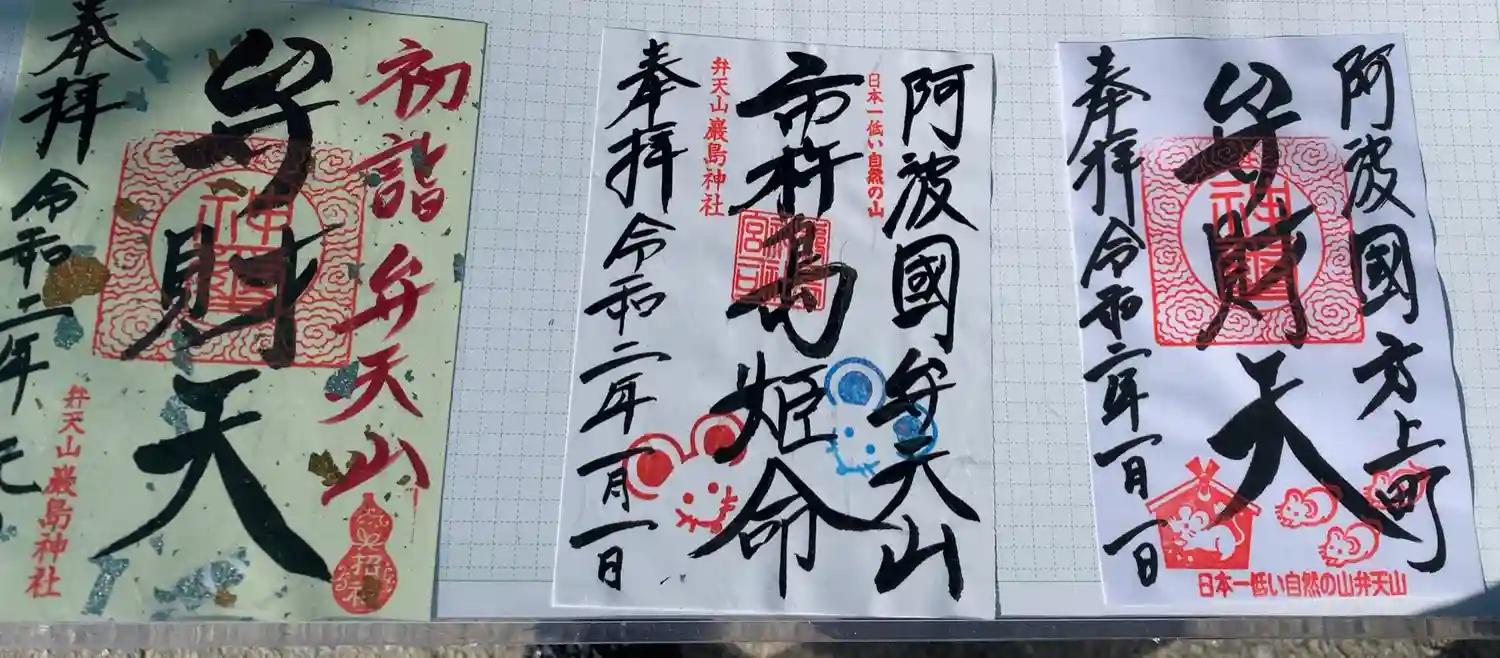 初詣 弁天山
弁財天
奉拝 令和二年 元
弁天山巌島神社
招福
阿波國弁天山
日本一低い自然の山
市杵島姫命
弁天山巌島神社
奉拝 令和二年一月一日
阿波國方上町
弁財天
奉拝 令和二年一月一日
日本一低い自然の山弁天山